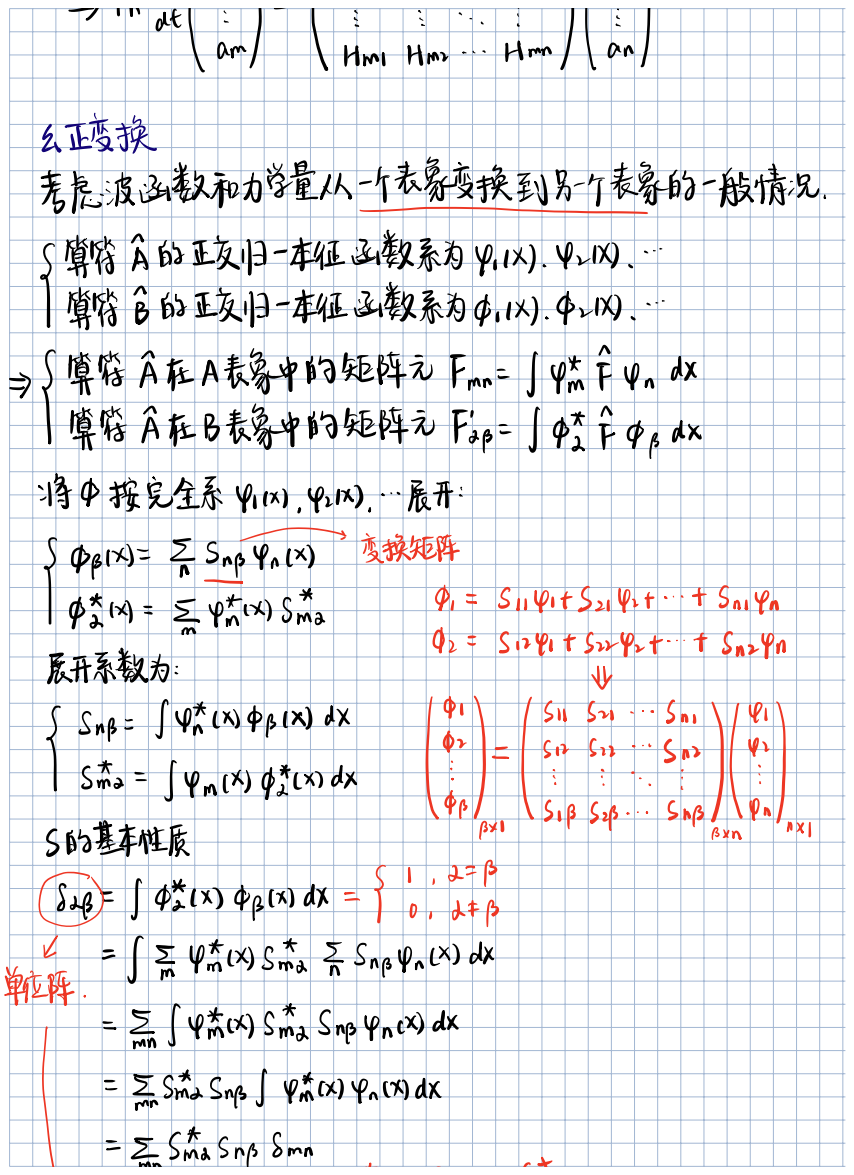 ⇒ iħ d/dt ( ⋮ am ) = ( ⋮ ⋮ ⋱ ⋮ Hm1 Hm2 ⋯ Hmn ) ( ⋮ an )
幺正变换
考虑波函数和力学量从一个表象变换到另一个表象的一般情况.
{ 算符 Â 的正交归一本征函数系为 φ₁(x). φ₂(x). ⋯
算符 B̂ 的正交归一本征函数系为 ϕ₁(x). ϕ₂(x). ⋯
⇒ { 算符 Â 在 A 表象中的矩阵元 Fmn = ∫ φm* F̂ φn dx
算符 Â 在 B 表象中的矩阵元 F'αβ = ∫ ϕα* F̂ ϕβ dx
将 Φ 按完全系 φ₁(x), φ₂(x), ⋯ 展开:
{ ϕβ(x) = ∑n Snβ φn(x) → 变换矩阵
ϕα*(x) = ∑m φm*(x) Smα*
ϕ₁ = S11φ1 + S21φ2 + ⋯ + Sn1φn
ϕ₂ = S12φ1 + S22φ2 + ⋯ + Sn2φn
⇓
展开系数为:
{ Snβ = ∫ φn*(x) ϕβ(x) dx
Smα* = ∫ φm(x) ϕα*(x) dx
( ϕ1 ϕ2 ⋮ ϕβ )β×1 = ( S11 S21 ⋯ Sn1
S12 S22 ⋯ Sn2
⋮ ⋮ ⋱ ⋮
S1β S2β ⋯ Snβ )β×n ( φ1 φ2 ⋮ φn )n×1
S的基本性质
δαβ = ∫ ϕα*(x) ϕβ(x) dx = { 1, α=β
0, α≠β
= ∫ ∑m φm*(x) Smα* ∑n Snβ φn(x) dx
单位阵.
= ∑mn ∫ φm*(x) Smα* Snβ φn(x) dx
= ∑mn Smα* Snβ ∫ φm*(x) φn(x) dx
= ∑mn Smα* Snβ δmn